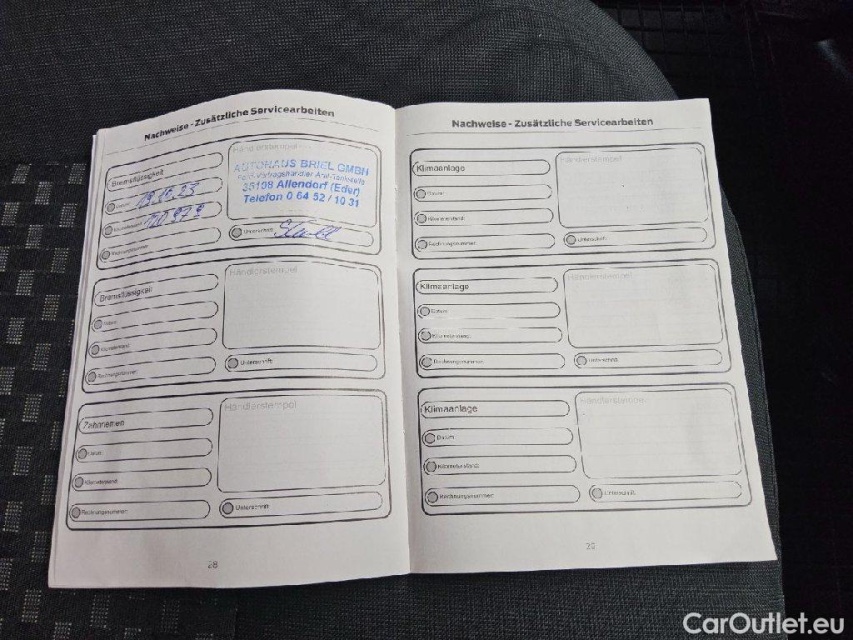 Nachweise - Zusätzliche Servicearbeiten
Bremsflüssigkeit
Datum
Kilometerstand
Rechnungsnummer
Händlerstempel
AUTOHAUS BRIEL GMBH
35108 Allendorf (Eder)
Telefon 0 64 52 / 10 31
Unterschrift
Bremsflüssigkeit
Datum
Kilometerstand
Rechnungsnummer
Händlerstempel
Unterschrift
Zahnriemen
Datum
Kilometerstand
Rechnungsnummer
Händlerstempel
Unterschrift
28
Nachweise - Zusätzliche Servicearbeiten
Klimaanlage
Datum
Kilometerstand
Rechnungsnummer
Händlerstempel
Unterschrift
Klimaanlage
Datum
Kilometerstand
Rechnungsnummer
Händlerstempel
Unterschrift
Klimaanlage
Datum
Kilometerstand
Rechnungsnummer
Händlerstempel
Unterschrift
29
CarOutlet.eu